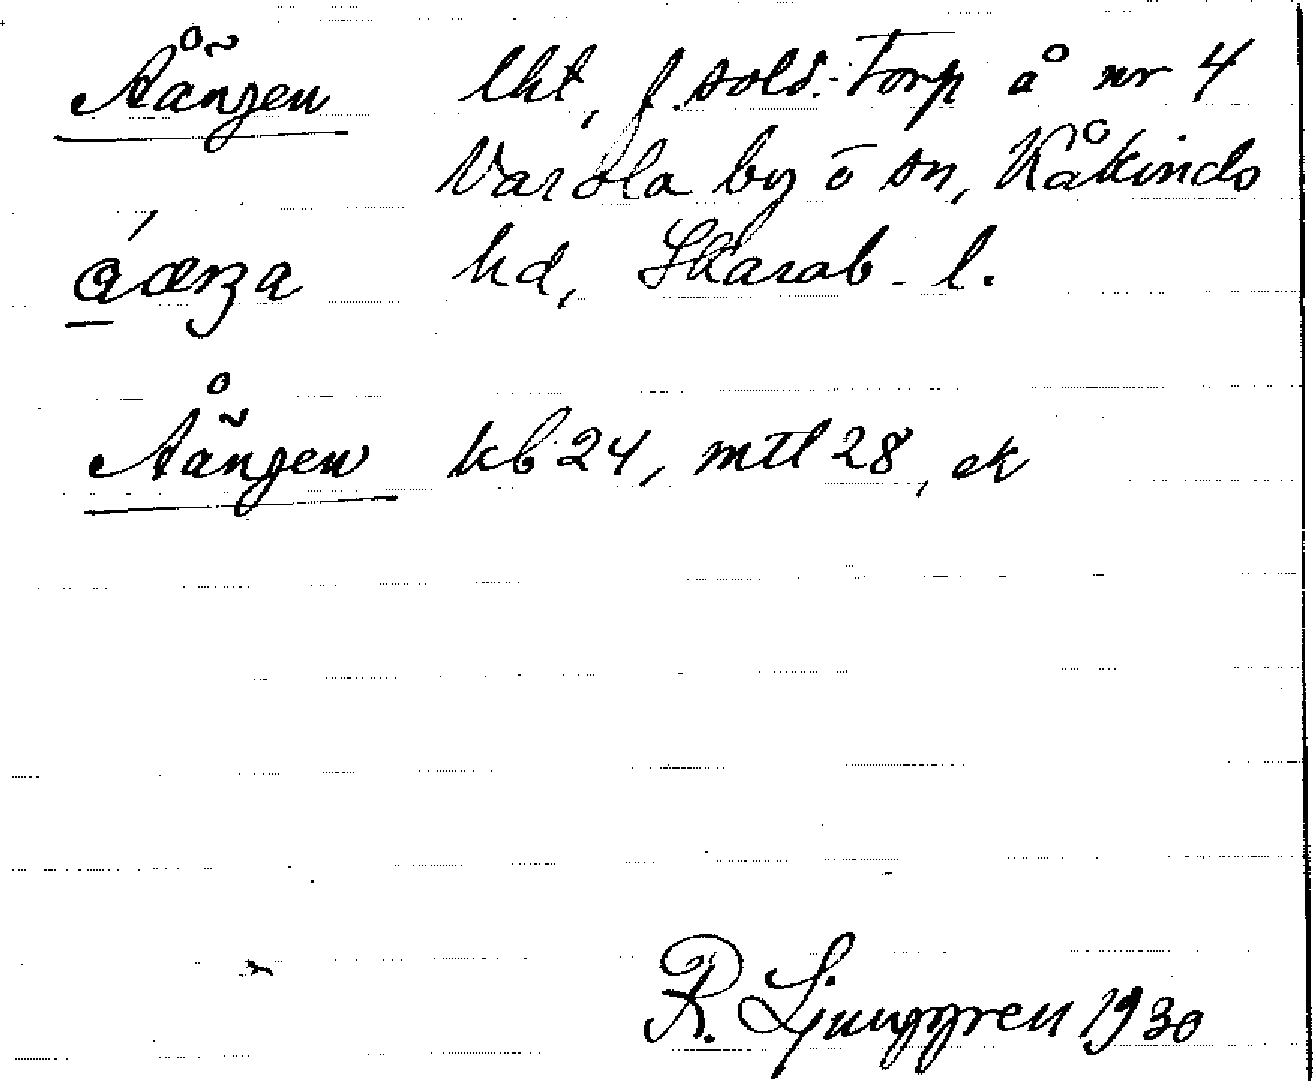 Åängen lht, f. sold.-Torp å nr 4
Varola by o sn, Kåkinds
hd, Skarab. l.
Åängen kb 24, mtl 28, ek
R. Ljunggren 1930